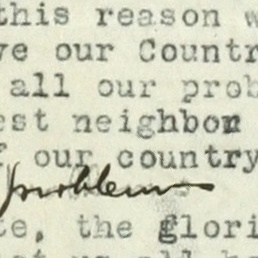 this reason w
ve our Countr
all our prob
est neighbor
f our country
problems
te, the glori